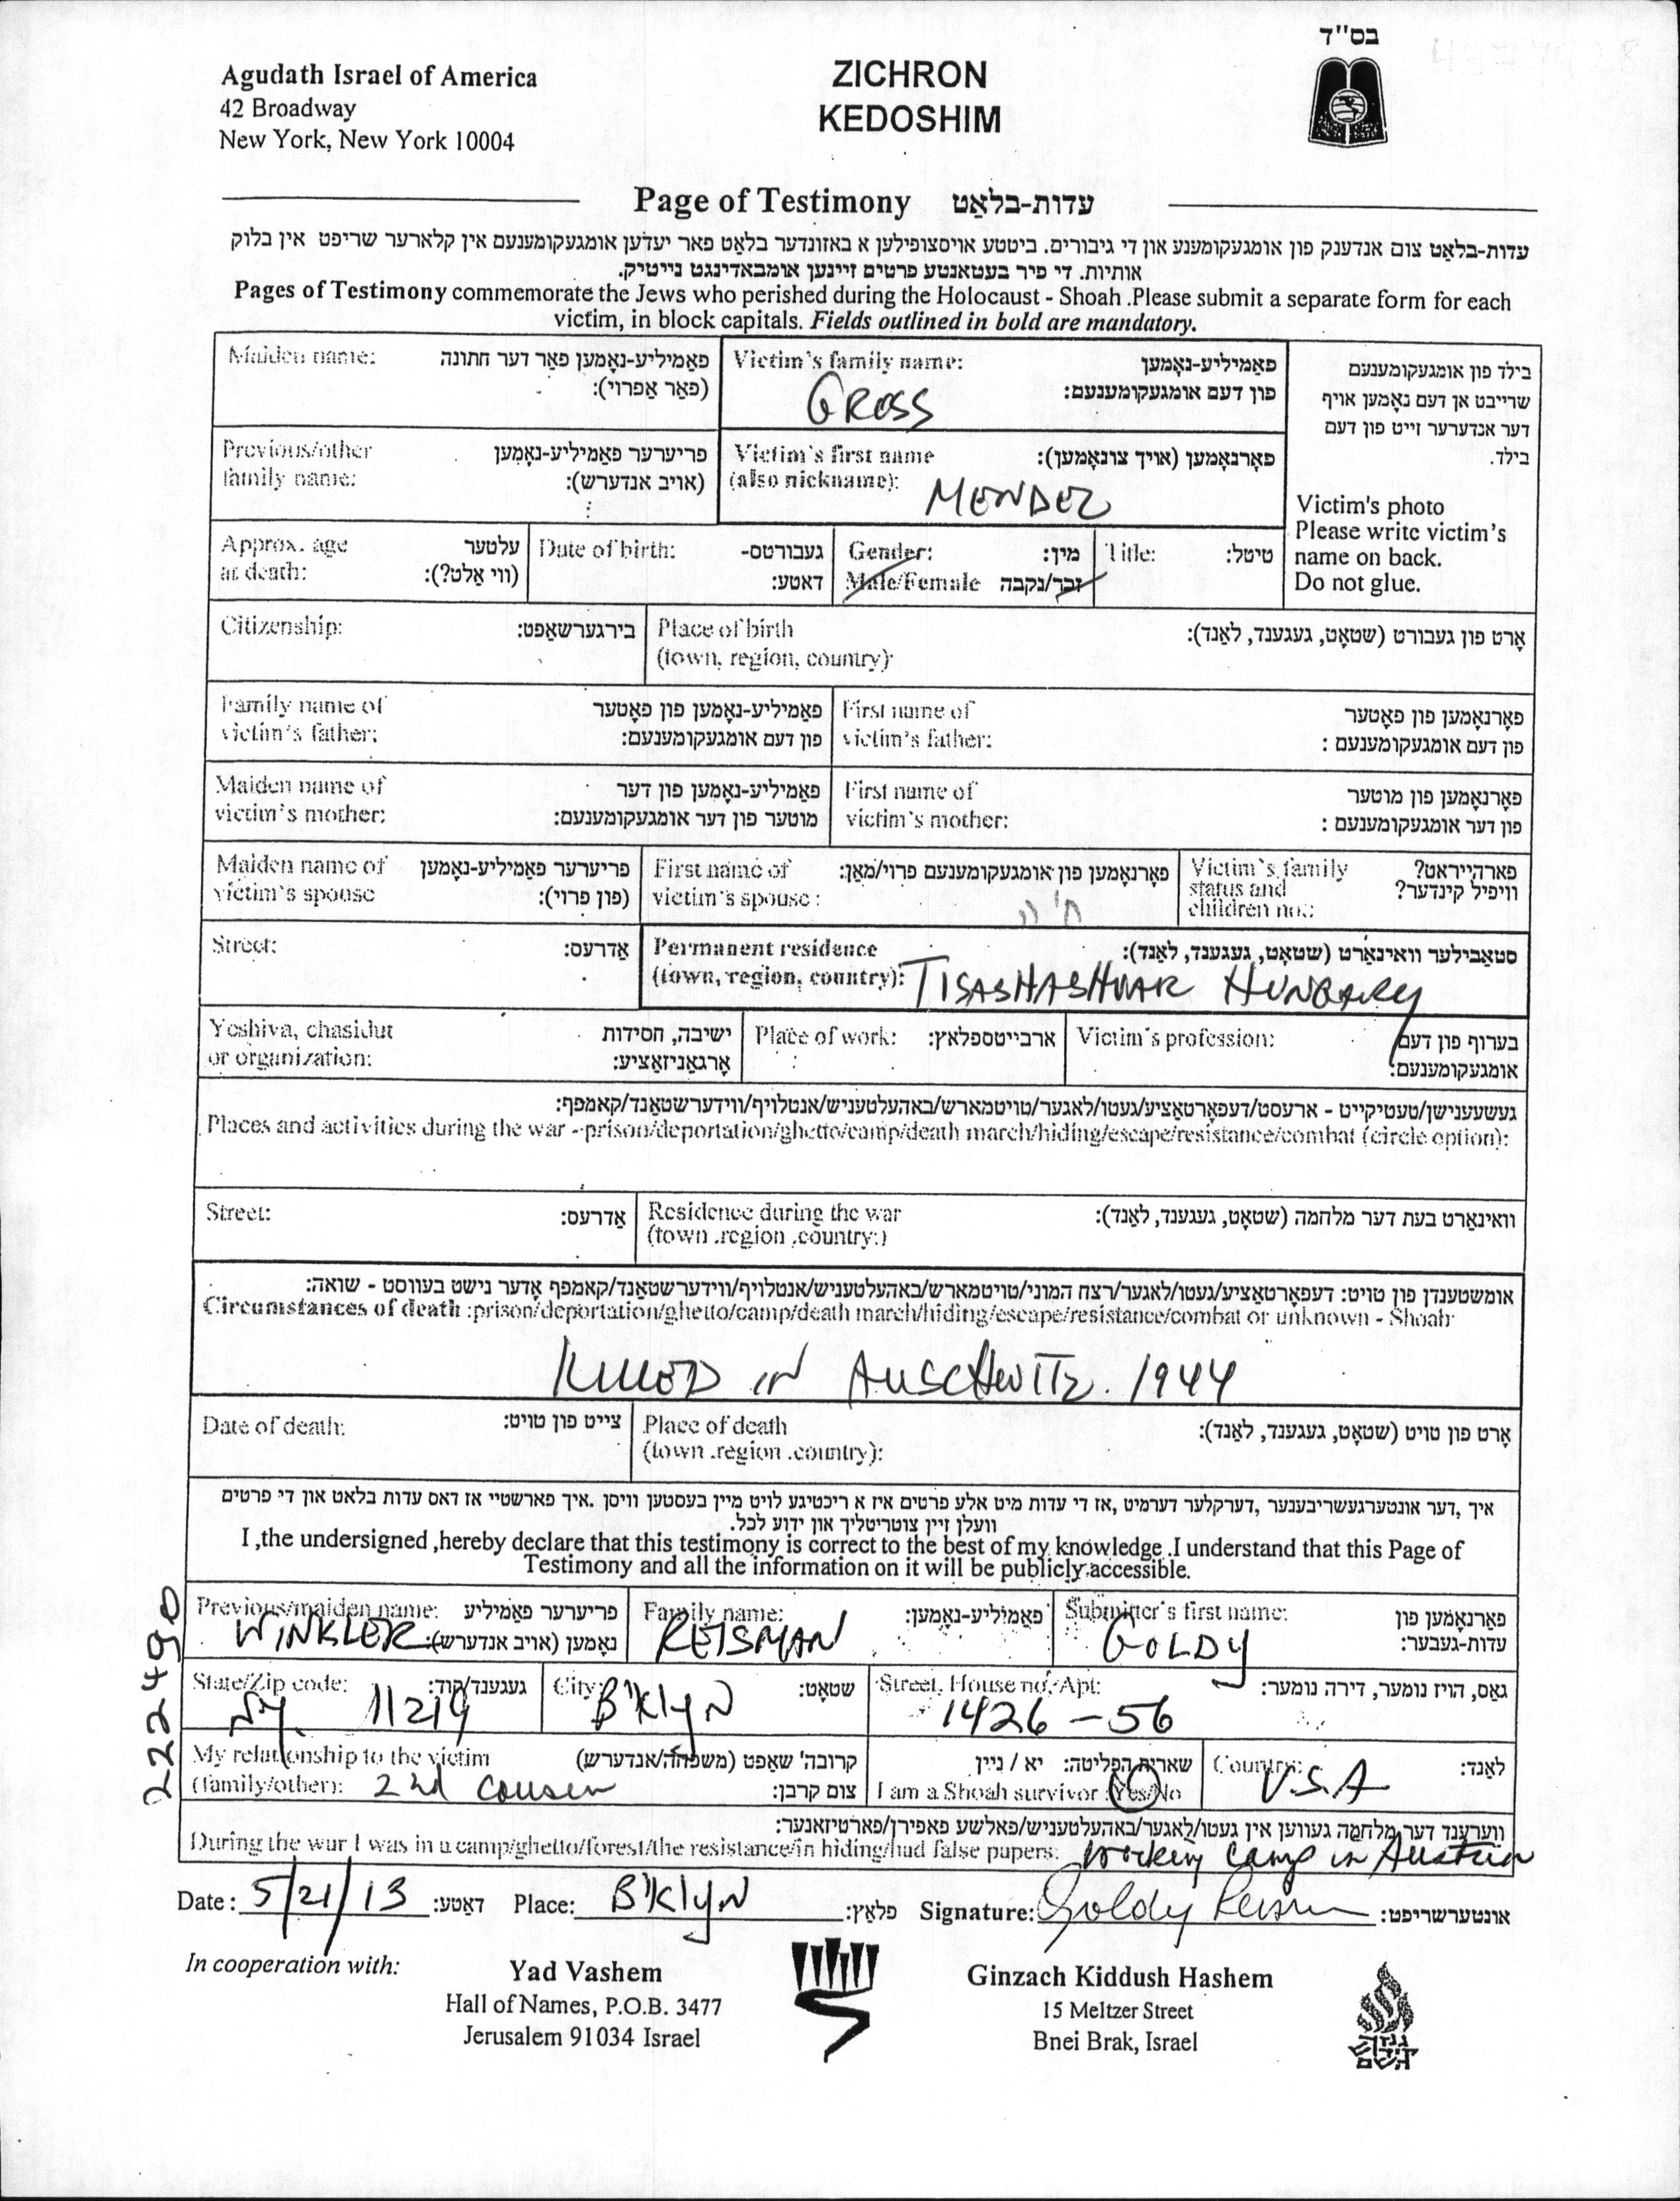 בס"ד
Agudath Israel of America
42 Broadway
New York, New York 10004
ZICHRON
KEDOSHIM
Page of Testimony עדות-בלאַט
עדות-בלאַט צום אנדענק פון אומגעקומענע און די גיבורים. ביטטע אויסצופילען א באזונדער בלאט פאר יעדען אומגעקומענעם אין קלארער שריפט אין בלוק
אותיות. די פיר בעטאנטע פרטים זיינען אומבאדינגט נייטיק.
Pages of Testimony commemorate the Jews who perished during the Holocaust - Shoah .Please submit a separate form for each
victim, in block capitals. Fields outlined in bold are mandatory.
Maiden name: פאַמיליע-נאָמען פאַר דער חתונה
(פאַר אַפרוי):
Victim's family name: פאַמיליע-נאָמען
פון דעם אומגעקומענעם:
GROSS
בילד פון אומגעקומענעם
שרייבט אן דעם נאָמען אויף
דער אנדערער זייט פון דעם
בילד.
Victim's photo
Please write victim's
name on back.
Do not glue.
Previous/other פריערער פאַמיליע-נאָמען
family name: (אויב אנדערש):
Victim's first name פאָרנאָמען (אויך צונאָמען):
(also nickname):
MENDEL
Approx. age עלטער
at death: (ווי אַלט?):
Date of birth: געבורטס-
דאטע:
Gender: מין:
Male/Female זכר/נקבה
Title: טיטל:
Citizenship: בירגערשאַפט:
Place of birth אָרט פון געבורט (שטאָט, געגענד, לאַנד):
(town, region, country):
Family name of פאַמיליע-נאָמען פון פאָטער
victim's father: פון דעם אומגעקומענעם:
First name of פאָרנאָמען פון פאָטער
victim's father: פון דעם אומגעקומענעם :
Maiden name of פאַמיליע-נאָמען פון דער
victim's mother: מוטער פון דער אומגעקומענעם:
First name of פאָרנאָמען פון מוטער
victim's mother: פון דער אומגעקומענעם :
Maiden name of פריערער פאַמיליע-נאָמען
victim's spouse (פון פרוי):
First name of פאָרנאָמען פון אומגעקומענעם פרוי/מאַן:
victim's spouse :
חי'ה
Victim's family פארהייראט?
status and וויפיל קינדער?
children no.:
Street: אַדרעס:
Permanent residence סטאַבילער וואוינאָרט (שטאָט, געגענד, לאַנד):
(town, region, country): TISASHASHWAR HUNGARY
Yeshiva, chasidut ישיבה, חסידות
or organization: אָרגאַניזאַציע:
Place of work: ארבייטספלאץ:
Victim's profession: בערוף פון דעם
אומגעקומענעם:
געשעענישן/טעטיקייט - ארעסט/דעפּאָרטאַציע/געטו/לאגער/טויטמארש/באהעלטעניש/אנטלויף/ווידערשטאַנד/קאמפּף:
Places and activities during the war - prison/deportation/ghetto/camp/death march/hiding/escape/resistance/combat (circle option):
Street: אַדרעס:
Residence during the war וואוינאָרט בעת דער מלחמה (שטאָט, געגענד, לאַנד):
(town .region .country:)
אומשטענדן פון טויט: דעפּאָרטאַציע/געטו/לאגער/רצח המוני/טויטמארש/באהעלטעניש/אנטלויף/ווידערשטאַנד/קאמפּף אָדער נישט בעוווסט - שואה:
Circumstances of death :prison/deportation/ghetto/camp/death march/hiding/escape/resistance/combat or unknown - Shoah
KILLED IN AUSCHWITZ. 1944
Date of death: צייט פון טויט:
Place of death אָרט פון טויט (שטאָט, געגענד, לאַנד):
(town .region .country):
איך ,דער אונטערגעשריבענער ,דערקלער דערמיט ,אז די עדות מיט אלע פרטים איז א ריכטיגע לויט מיין בעסטען וויסן .איך פארשטיי אז דאס עדות בלאט און די פרטים
וועלן זיין צוטריטליך און ידוע לכל.
I ,the undersigned ,hereby declare that this testimony is correct to the best of my knowledge .I understand that this Page of
Testimony and all the information on it will be publicly accessible.
Previous/maiden name: פריערער פאַמיליע
WINKLER נאָמען (אויב אנדערש):
Family name: פאַמיליע-נאָמען:
REISMAN
Submitter's first name: פאָרנאָמען פון
עדות-געבער:
GOLDY
State/Zip code: געגענד/קוד:
NY. 11219
City: שטאָט:
B'klyN
Street, House no., Apt: גאַס, הויז נומער, דירה נומער:
1426 - 56
My relationship to the victim קרובה' שאַפט (משפּחה/אנדערש)
(family/other): 2nd cousen צום קרבן:
שארית הפליטה: יא / ניין
I am a Shoah survivor :Yes/No
Country: לאַנד:
U.S.A
ווערענד דער מלחמה געווען אין געטו/לאגער/באהעלטעניש/פאלשע פאפירן/פארטיזאנער:
During the war I was in a camp/ghetto/forest/the resistance/in hiding/had false papers: working camp in Austria
Date : 5/21/13 דאטע: Place: B'klyN פלאַץ: Signature: Goldy Reisman אונטערשריפט:
222490
In cooperation with:
Yad Vashem
Hall of Names, P.O.B. 3477
Jerusalem 91034 Israel
Ginzach Kiddush Hashem
15 Meltzer Street
Bnei Brak, Israel
גנזך
קידוש
השם